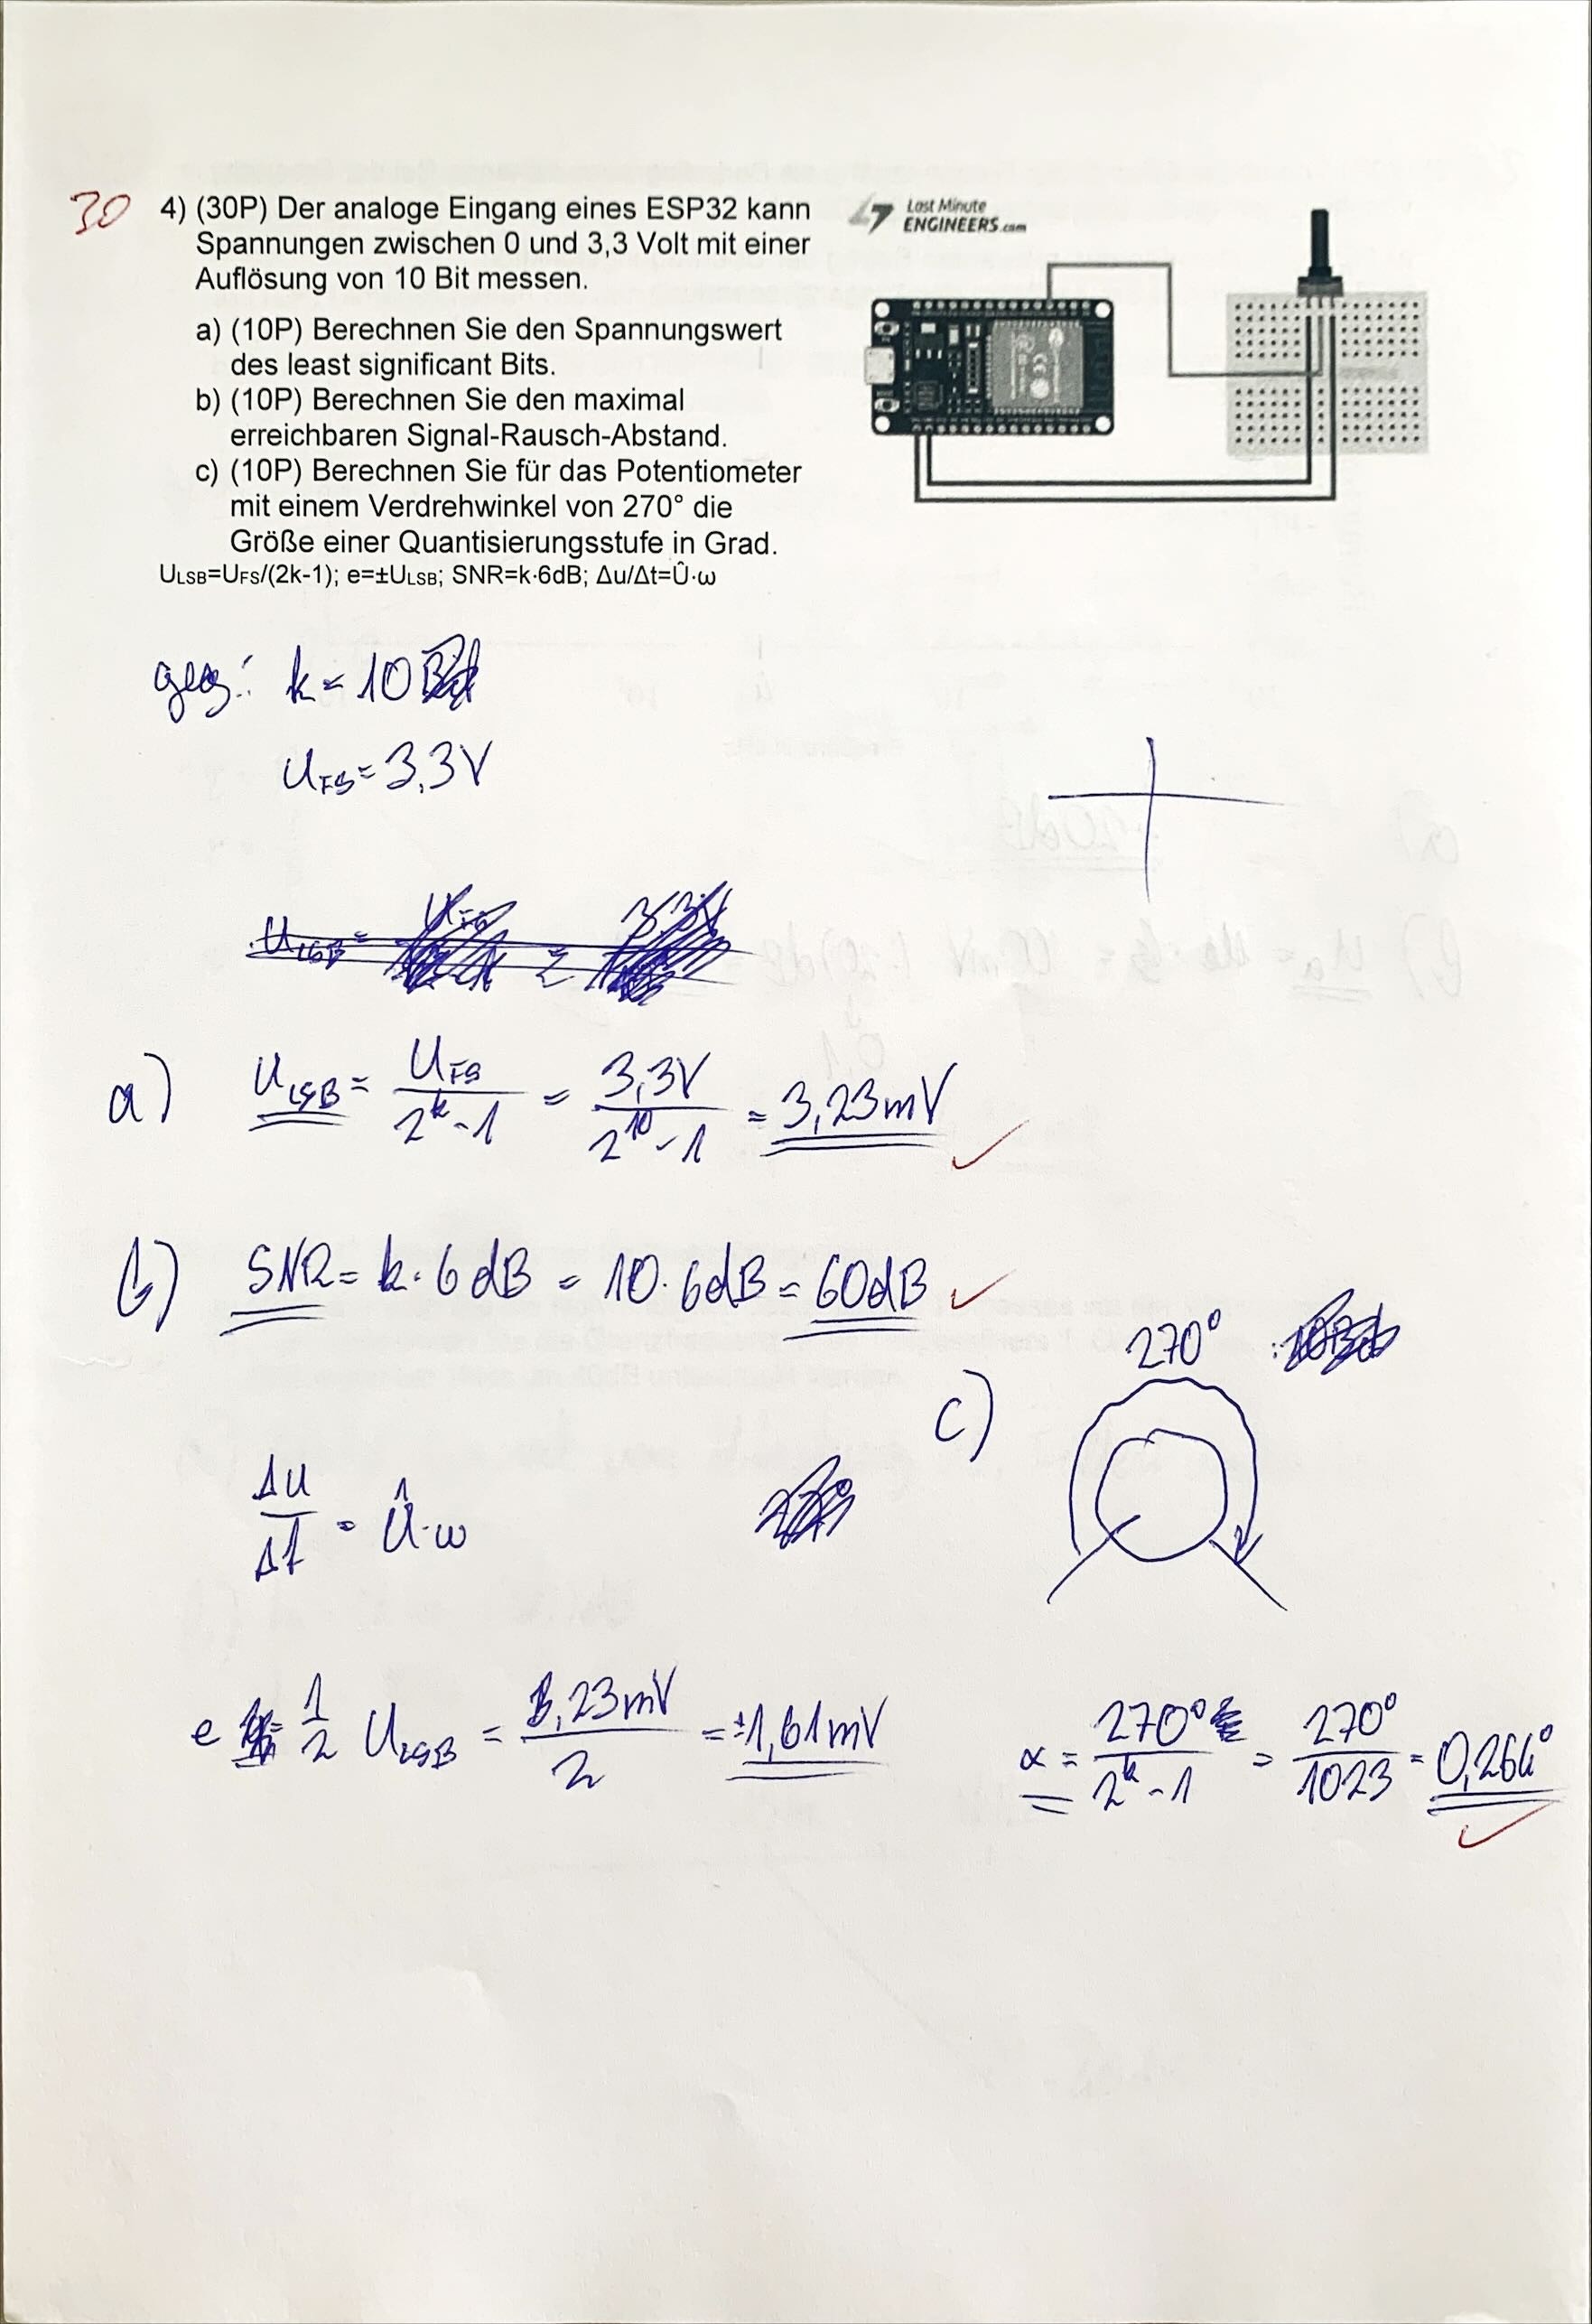 30
4) (30P) Der analoge Eingang eines ESP32 kann
Spannungen zwischen 0 und 3,3 Volt mit einer
Auflösung von 10 Bit messen.
a) (10P) Berechnen Sie den Spannungswert
des least significant Bits.
b) (10P) Berechnen Sie den maximal
erreichbaren Signal-Rausch-Abstand.
c) (10P) Berechnen Sie für das Potentiometer
mit einem Verdrehwinkel von 270° die
Größe einer Quantisierungsstufe in Grad.
U_LSB=U_FS/(2k-1); e=±U_LSB; SNR=k·6dB; Δu/Δt=Û·ω
Last Minute
ENGINEERS.com
geg: k = 10
U_FS = 3,3V
a) U_LSB = U_FS / (2^k - 1) = 3,3V / (2^10 - 1) = 3,23mV
b) SNR = k · 6dB = 10 · 6dB = 60dB
c) 270°
Δu/Δt = Û·ω
e = 1/2 U_LSB = 3,23mV / 2 = ±1,61mV
α = 270° / (2^k - 1) = 270° / 1023 = 0,264°